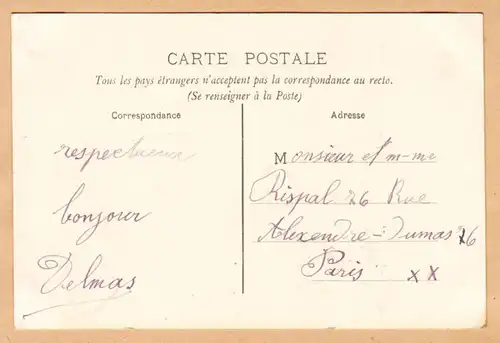 CARTE POSTALE
Tous les pays étrangers n'acceptent pas la correspondance au recto.
(Se renseigner à la Poste)
Correspondance
Adresse
respectueux
bonjour
Delmas
Monsieur et m-me
Rispal 26 Rue
Alexendre-Dumas 26
Paris XX